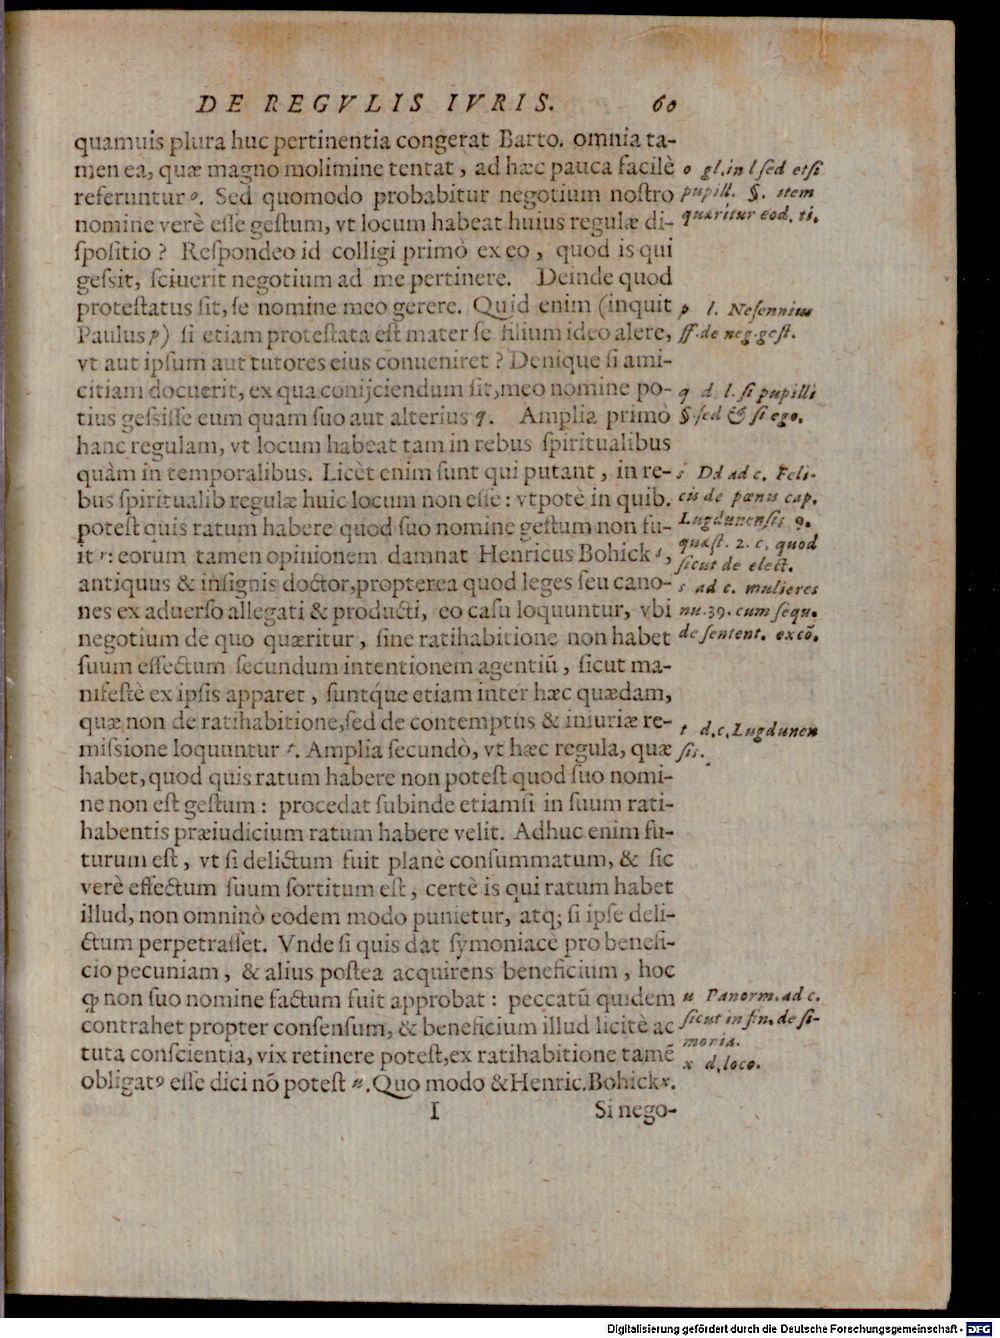 DE REGVLIS IVRIS. 60
quamuis plura huc pertinentia congerat Barto. omnia ta-
men ea, quæ magno molimine tentat, ad hæc pauca facilè
referuntur o. Sed quomodo probabitur negotium nostro
nomine verè esse gestum, vt locum habeat huius regulæ di-
spositio? Respondeo id colligi primò ex eo, quod is qui
gessit, sciuerit negotium ad me pertinere. Deinde quod
protestatus sit, se nomine meo gerere. Quid enim (inquit
Paulus p) si etiam protestata est mater se filium ideo alere,
vt aut ipsum aut tutores eius conueniret? Denique si ami-
citiam docuerit, ex qua conijciendum sit, meo nomine po-
tius gessisse eum quam suo aut alterius q. Amplia primò
hanc regulam, vt locum habeat tam in rebus spiritualibus
quàm in temporalibus. Licèt enim sunt qui putant, in re-
bus spiritualib regulæ huic locum non esse: vtpotè in quib.
potest quis ratum habere quod suo nomine gestum non fu-
it r: eorum tamen opinionem damnat Henricus Bohick s,
antiquus & insignis doctor, propterea quod leges seu cano-
nes ex aduerso allegati & producti, eo casu loquuntur, vbi
negotium de quo quæritur, sine ratihabitione non habet
suum effectum secundum intentionem agentiũ, sicut ma-
nifestè ex ipsis apparet, suntq́ue etiam inter hæc quædam,
quæ non de ratihabitione, sed de contemptus & iniuriæ re-
missione loquuntur t. Amplia secundò, vt hæc regula, quæ
habet, quod quis ratum habere non potest quod suo nomi-
ne non est gestum: procedat subinde etiamsi in suum rati-
habentis præiudicium ratum habere velit. Adhuc enim fu-
turum est, vt si delictum fuit planè consummatum, & sic
verè effectum suum sortitum est, certè is qui ratum habet
illud, non omninò eodem modo punietur, atq; si ipse deli-
ctum perpetrasset. Vnde si quis dat symoniacè pro benefi-
cio pecuniam, & alius postea acquirens beneficium, hoc
ꝙ non suo nomine factum fuit approbat: peccatũ quidem
contrahet propter consensum, & beneficium illud licitè ac
tuta conscientia, vix retinere potest, ex ratihabitione tamẽ
obligatꝰ esse dici nõ potest u. Quo modo & Henric. Bohick x.
I Si nego-
o gl. in l sed etsi
pupill. §. item
quæritur eod. ti.
p l. Nesennius
ff. de neg. gest.
q d. l. si pupilli
§. sed & si ego.
s Dd ad c. Feli-
cis de pœnis cap.
Lugdunensis 9.
quæst. 2. c. quod
sicut de elect.
s ad c. mulieres
nu. 39. cum sequ.
de sentent. excõ.
t d. c. Lugdunen
sis.
u Panorm. ad c.
sicut in fin. de si-
monia.
x d. loco.
Digitalisierung gefördert durch die Deutsche Forschungsgemeinschaft - DFG